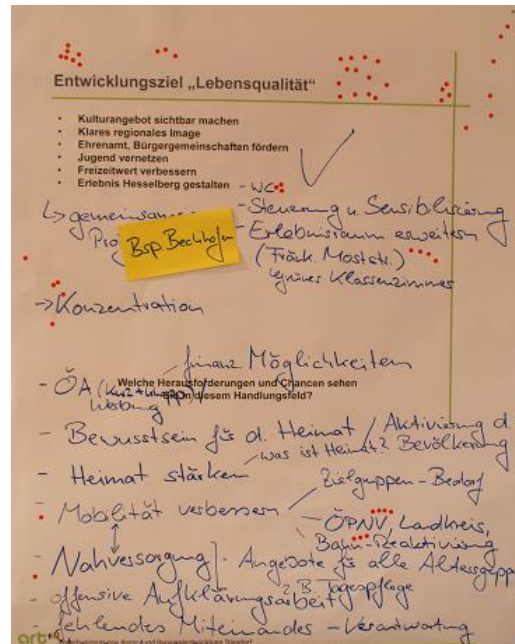 Entwicklungsziel „Lebensqualität“
• Kulturangebot sichtbar machen
• Klares regionales Image
• Ehrenamt, Bürgergemeinschaften fördern
• Jugend vernetzen
• Freizeitwert verbessern
• Erlebnis Hesselberg gestalten
- WC
- Steuerung u. Sensibilisierung
- Erlebnisraum erweitern
(Fränk. Moststr.)
grünes Klassenzimmer
↳ gemeinsame
Pro
Bsp. Bechhofen
→ Konzentration
finanz. Möglichkeiten
Welche Herausforderungen und Chancen sehen
Sie in diesem Handlungsfeld?
- ÖA (kurz + knapp)
Werbung
- Bewusstsein für d. Heimat / Aktivierung d. Bevölkerung
- Heimat stärken - was ist Heimat?
- Mobilität verbessern
Zielgruppen-Bedarf
ÖPNV, Landkreis,
Bahn-Reaktivierung
- Nahversorgung
- Angebote für alle Altersgruppen
z.B. Tagespflege
- offensive Aufklärungsarbeit
- fehlendes Miteinander - Verantwortung
art